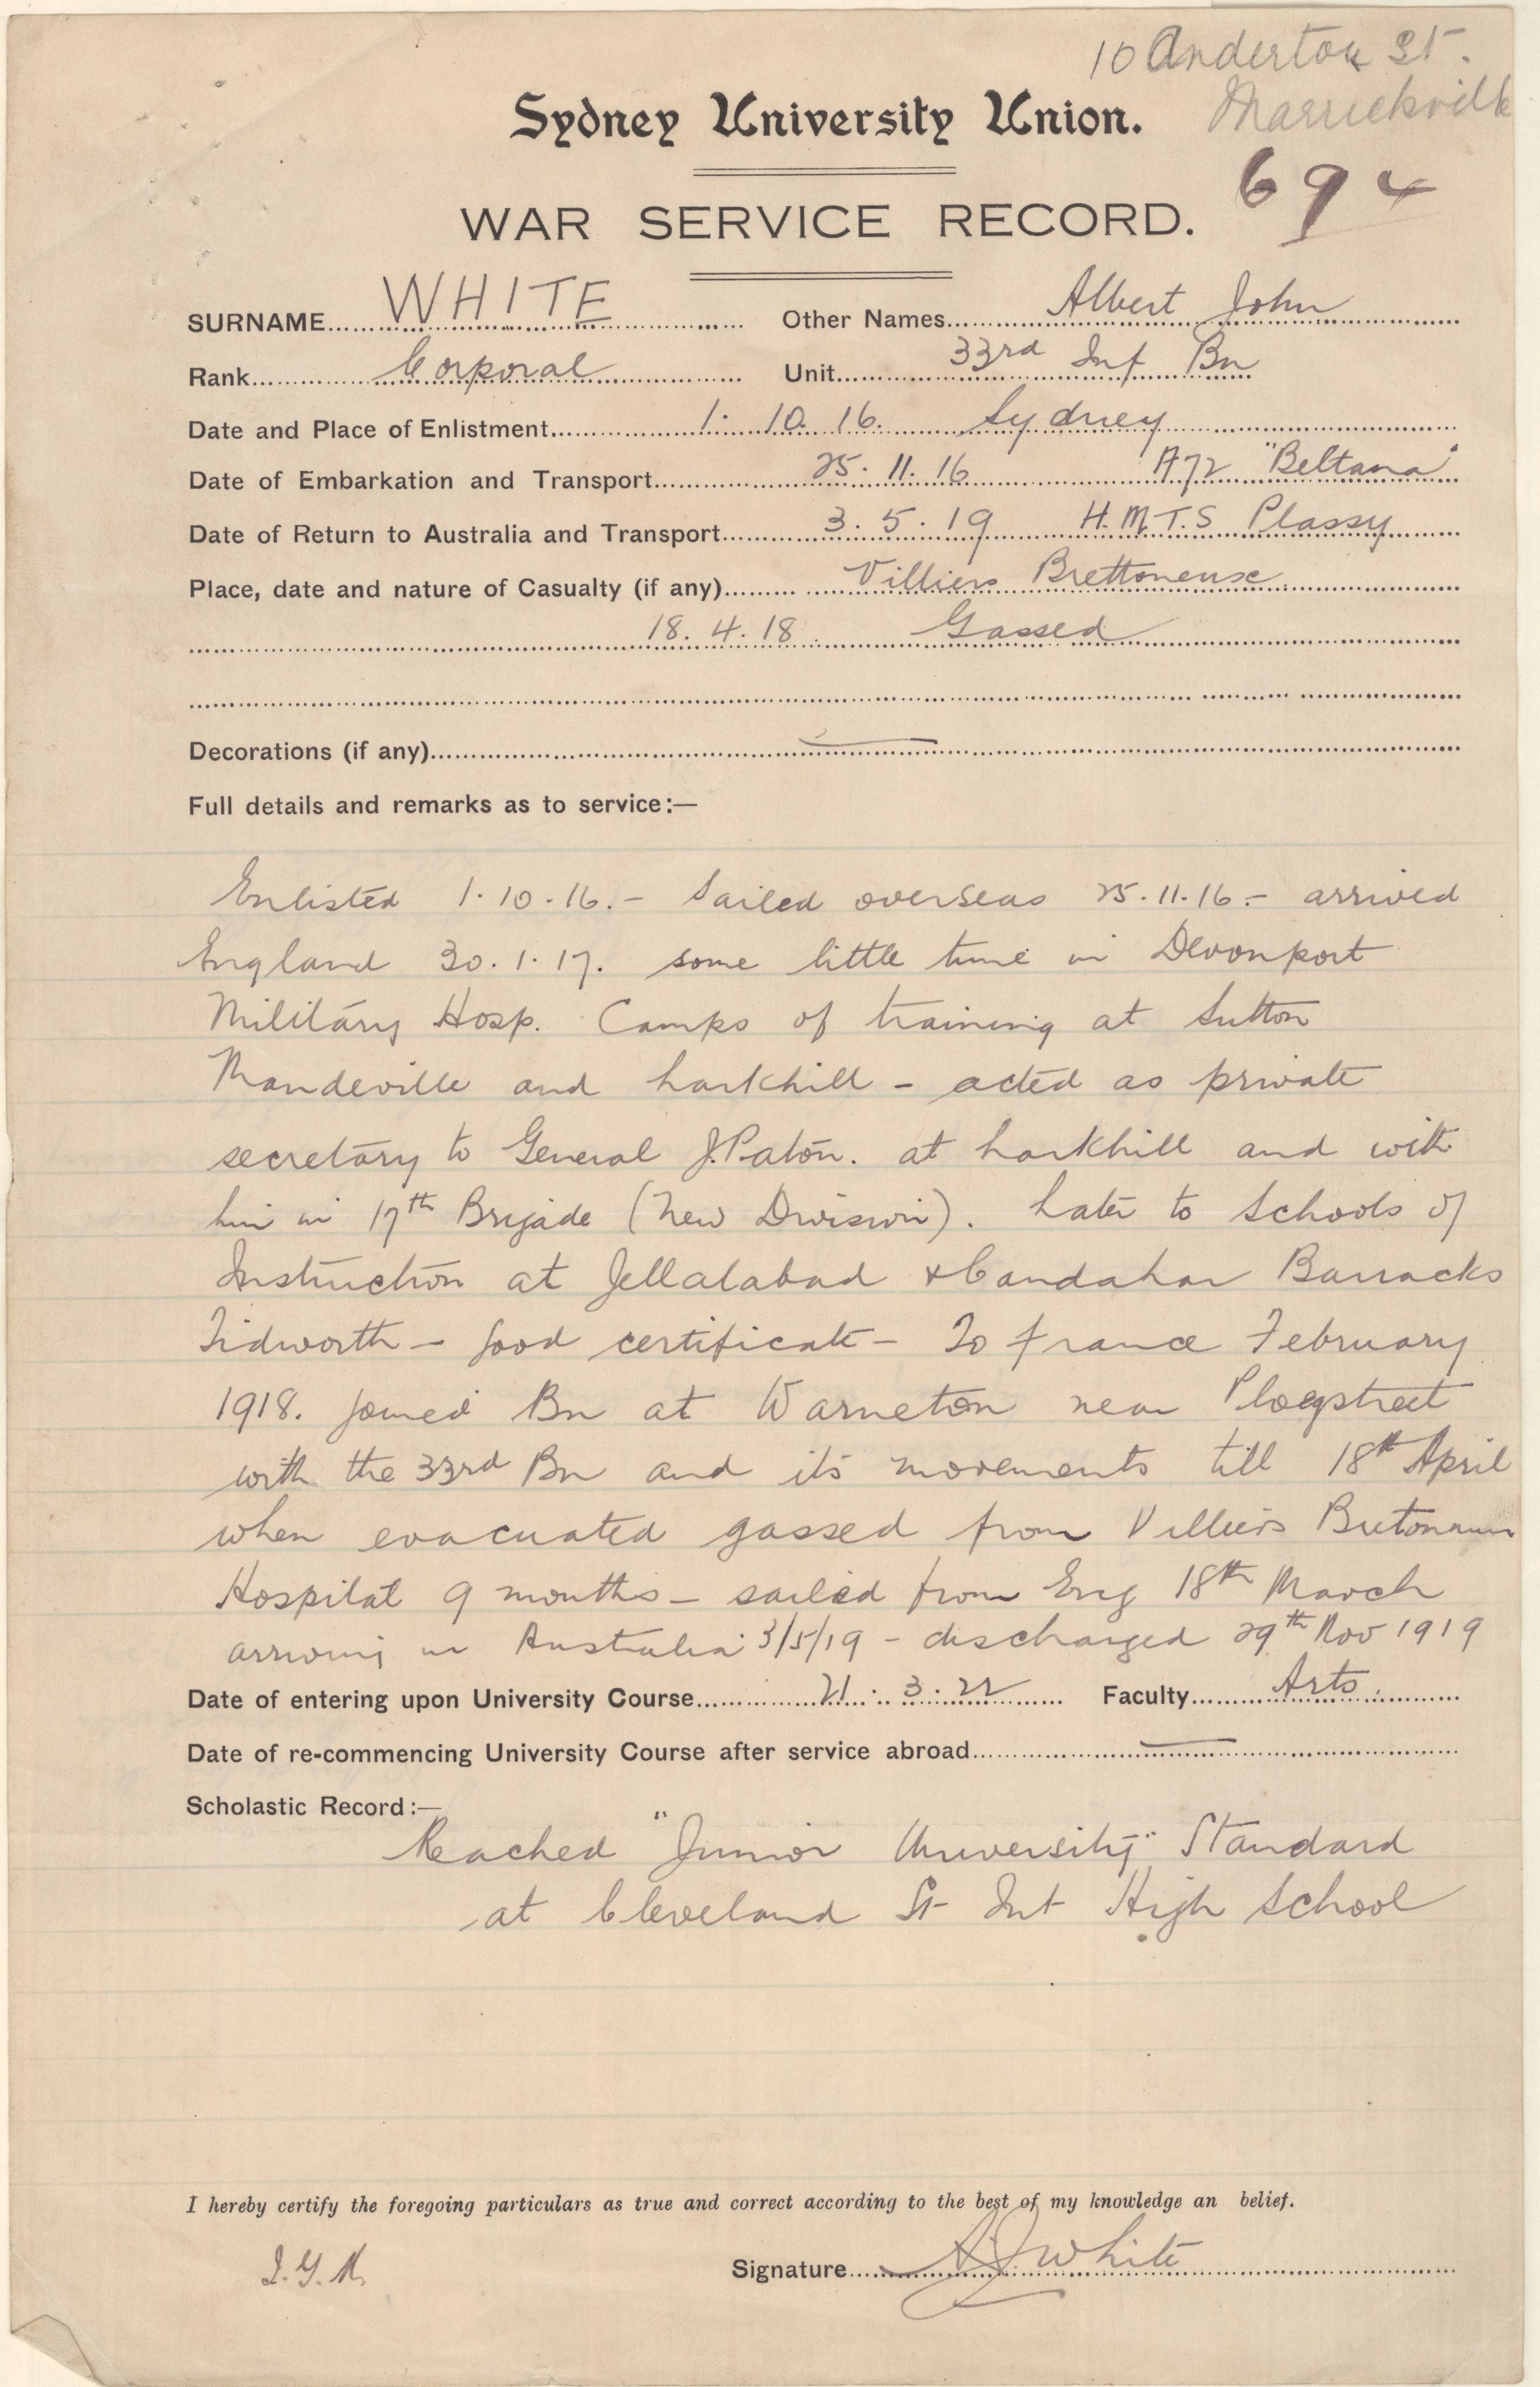 10 Anderton St.
Marrickville
Sydney University Union.
694
WAR SERVICE RECORD.
SURNAME WHITE Other Names Albert John
Rank Corporal Unit 33rd Inf Bn
Date and Place of Enlistment 1. 10. 16. Sydney
Date of Embarkation and Transport 25. 11. 16 A72 "Beltana"
Date of Return to Australia and Transport 3. 5. 19 H.M.T.S Plassy
Place, date and nature of Casualty (if any) Villiers Brettoneuse
18. 4. 18. Gassed
Decorations (if any) —
Full details and remarks as to service:—
Enlisted 1.10.16. – Sailed overseas 25.11.16 – arrived
England 30.1.17. some little time in Devonport
Military Hosp. Camps of training at Sutton
Mandeville and Larkhill – acted as private
secretary to General J. Paton. at Larkhill and with
him in 17th Brigade (New Division). Later to Schools of
Instruction at Jellalabad & Candahar Barracks
Tidworth – good certificate – To France February
1918. joined Bn at Warneton near Ploegstreet
with the 33rd Bn and its movements till 18th April
when evacuated gassed from Villiers
Hospital 9 months – sailed from Eng 18th March
arriving in Australia 3/5/19 – discharged 29th Nov 1919
Date of entering upon University Course 21. 3. 22 Faculty Arts.
Date of re-commencing University Course after service abroad —
Scholastic Record:—
Reached "Junior University" Standard
at Cleveland St Int High School
I hereby certify the foregoing particulars as true and correct according to the best of my knowledge an belief.
Signature A J White